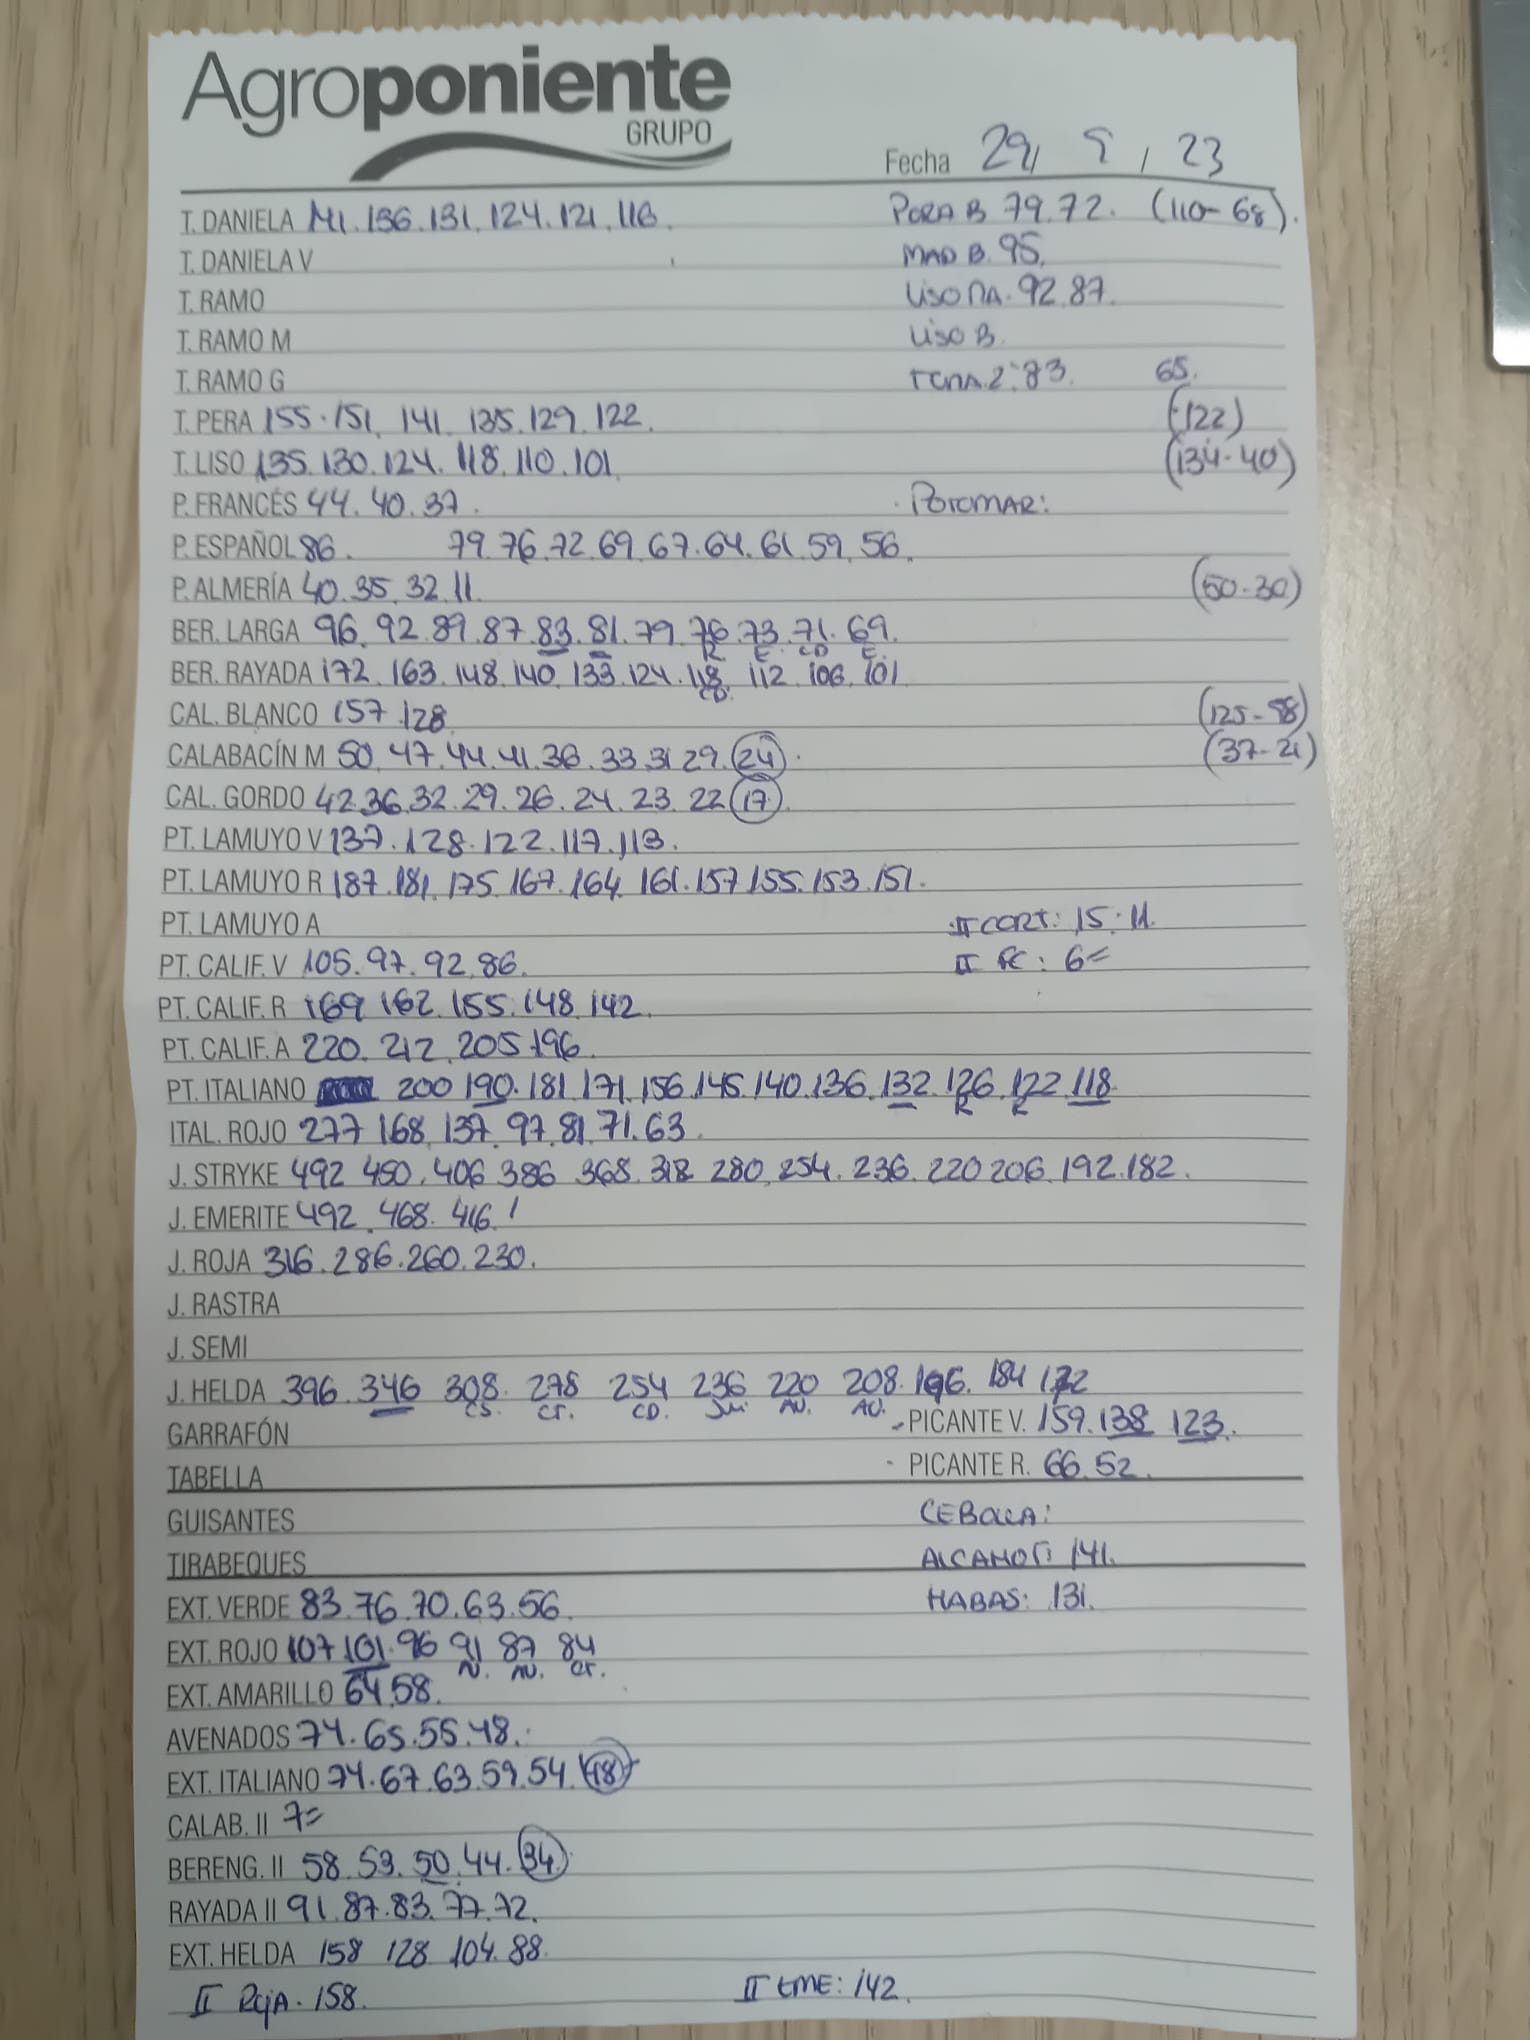 Agroponiente
GRUPO
Fecha 29, 5, 23
T. DANIELA 141. 136. 131. 124. 121. 116. PERA B 79. 72. (110-68).
T. DANIELA V MAD B. 95.
T. RAMO LISO MA. 92 87.
T. RAMO M LISO B.
T. RAMO G 2ª: 83. 65.
T. PERA 155. 151. 141. 135. 129. 122. (122)
T. LISO 135. 130. 124. 118. 110. 101. (134-40)
P. FRANCÉS 44. 40. 37. POTOMAR:
P. ESPAÑOL 86. 79. 76. 72. 69. 67. 64. 61. 59. 56.
P. ALMERÍA 40. 35. 32. 11. (50-30)
BER. LARGA 96. 92. 89. 87. 83. 81. 79. 76. 73. 71. 69.
R E. CD E.
BER. RAYADA 172. 163. 148. 140. 133. 124. 118. 112. 106. 101
CD.
CAL. BLANCO 157. 128. (125-58)
CALABACÍN M 50. 47. 44. 41. 36. 33. 31 29. 24. (37-21)
CAL. GORDO 42 36. 32. 29. 26. 24. 23. 22 17.
PT. LAMUYO V 137. 128. 122. 117. 113.
PT. LAMUYO R 187. 181. 175. 167. 164. 161. 157 155. 153. 151.
PT. LAMUYO A II CORT: 15. 11.
PT. CALIF. V 105. 97. 92. 86. II FC: 6=
PT. CALIF. R 169 162. 155. 148. 142.
PT. CALIF. A 220. 212. 205 196.
PT. ITALIANO 200 190. 181. 171. 156. 145. 140. 136. 132. 126. 122. 118
R R
ITAL. ROJO 277 168. 137. 97. 81. 71. 63.
J. STRYKE 492 450. 406 386 368. 318 280. 254. 236. 220 206. 192. 182.
J. EMERITE 492. 468. 416. /
J. ROJA 316. 286. 260. 230.
J. RASTRA
J. SEMI
J. HELDA 396. 346 308. 278 254 236 220 208. 196. 184 172
CS. CT. CD. JM. AU. AU.
GARRAFÓN - PICANTE V. 159. 138 123.
TABELLA - PICANTE R. 66. 52.
GUISANTES CEBOLLA:
TIRABEQUES ALCAHOF: 141.
EXT. VERDE 83. 76. 70. 63. 56. HABAS: 131.
EXT. ROJO 107 101. 96 91 87 84
N. AU. CT.
EXT. AMARILLO 64. 58.
AVENADOS 74. 65. 55. 48.
EXT. ITALIANO 74. 67. 63. 59. 54. 48
CALAB. II 7=
BERENG. II 58. 53. 50. 44. 34.
RAYADA II 91. 87. 83. 77. 72.
EXT. HELDA 158 128 104. 88.
II ROJA. 158. II EME: 142.